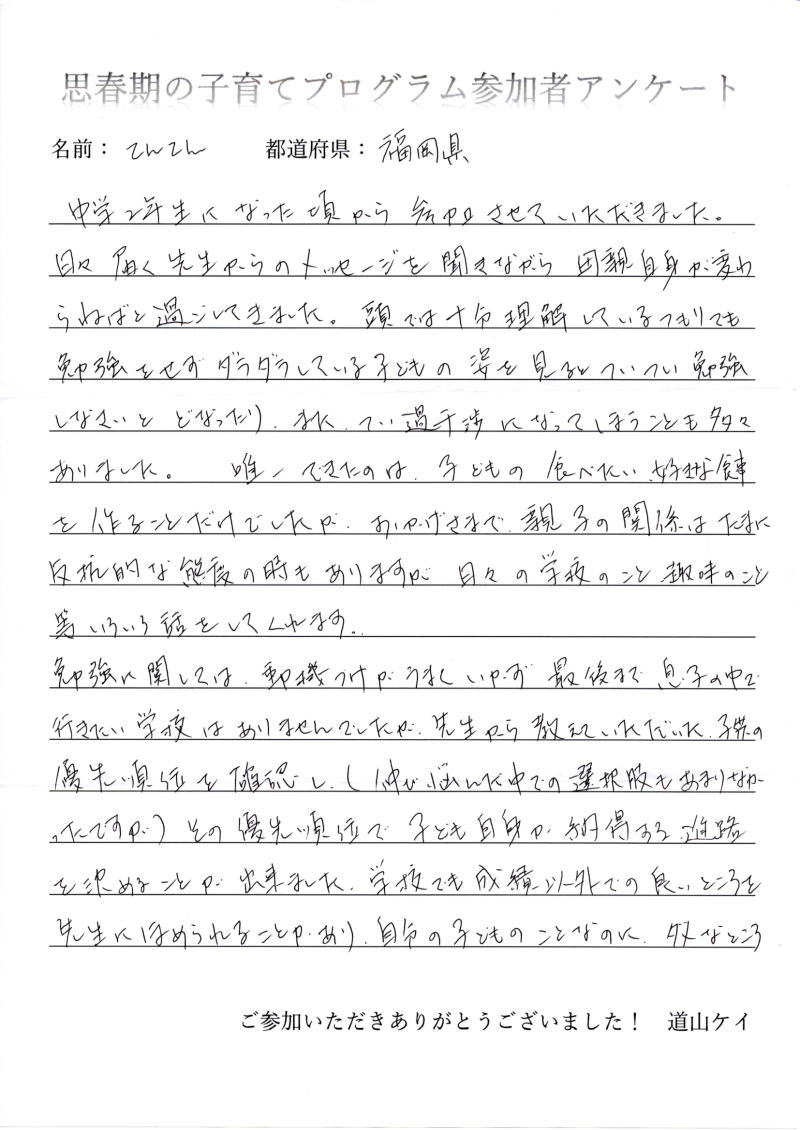 思春期の子育てプログラム参加者アンケート
名前： てんてん 都道府県： 福岡県
中学2年生になった頃から参加させていただきました。
日々届く先生からのメッセージを聞きながら母親自身が変わ
らねばと過ごしてきました。頭では十分理解しているつもりでも
勉強をせずダラダラしている子どもの姿を見るとついつい勉強
しなさいとどなったり、また、つい過干渉になってしまうことも多々
ありました。 唯一できたのは、子どもの食べたい好きな食事
を作ることだけでしたが、おかげさまで、親子の関係はたまに
反抗的な態度の時もありますが、日々の学校のこと、趣味のこと
等いろいろ話をしてくれます。
勉強に関しては、動機づけがうまくいかず最後まで息子の中で
行きたい学校はありませんでしたが、先生から教えていただいた、子供の
優先順位を確認し、（伸び悩んだ中での選択肢もあまりなか
ったですが）その優先順位で子ども自身が納得する進路
を決めることが出来ました。学校でも成績以外での良いところを
先生にほめられることがあり、自分の子どものことなのに、ダメなところ
ご参加いただきありがとうございました！ 道山ケイ